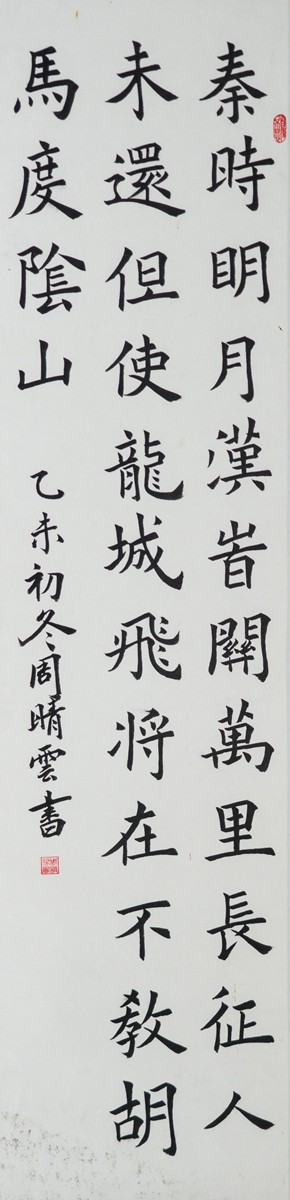 秦時明月漢時關萬里長征人
未還但使龍城飛将在不教胡
馬度陰山
乙未初冬周晴雲書